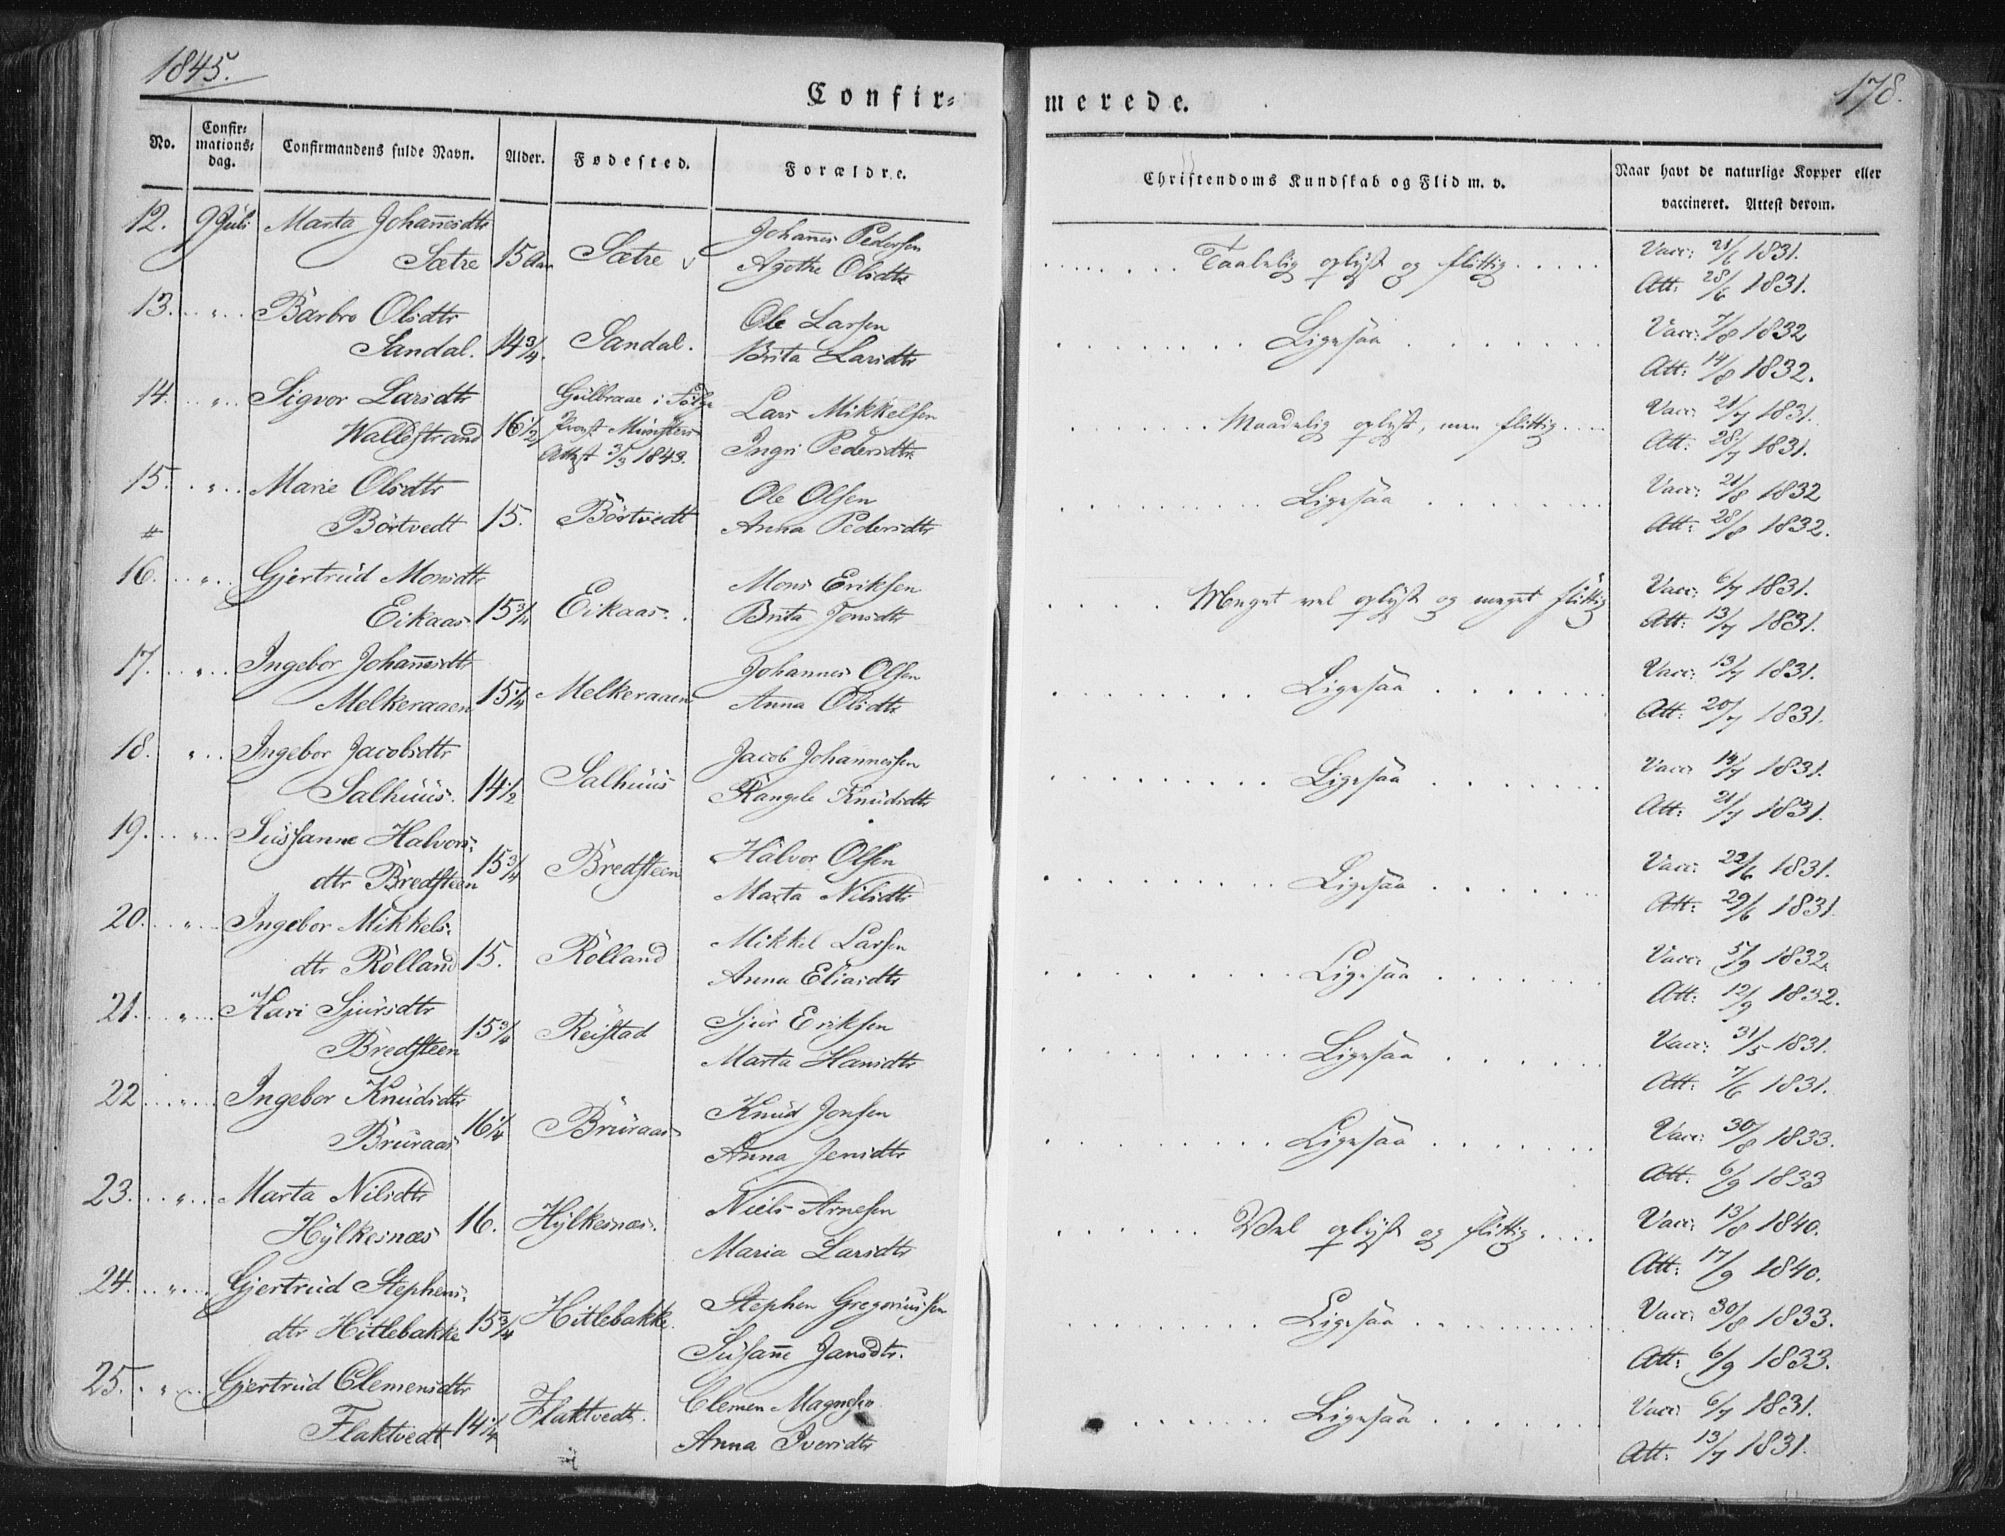 1845.
178.
Confir=
merede.
No.
Confir=
mations=
dag.
Confirmandens fulde Navn.
Alder.
Fødested.
Forældre.
Christendoms Kundskab og Flid m. v.
Naar havt de naturlige Kopper eller
vaccineret. Attest derom.
12. 9 Juli Marta Johannesdtr Johannes Pedersen Vacc: 21/6 1831.
Sætre 15 Aar Sætre Agothe Olsdtr Taalelig oplyst og flittig Att: 28/6 1831.
13. " Barbro Olsdtr Ole Larsen Vacc: 7/8 1832
Sandal. 14 3/4 Sandal. Brita Larsdtr Ligesaa Att: 14/8 1832.
14. " Sigvor Larsdtr Gulbraae i Lars Mikkelsen Vacc: 21/7 1831.
Wallestrand 16 1/2 Provst Münsters Maadelig oplyst, men flittig
Attest 3/9 1843. Ingri Pedersdtr Att: 28/7 1831.
15. " Marie Olsdtr Ole Olsen Vacc: 21/8 1832
# Börtvedt 15. Börtvedt Anna Pedersdtr Ligesaa Att: 28/8 1832.
16. " Gjertrud Monsdtr Mons Eriksen Vacc: 6/7 1831.
Eikaas 15 3/4 Eikaas. Brita Jonsdtr Meget vel oplyst og meget flittig Att: 13/7 1831.
17. " Ingebor Johannesdtr Johannes Olsen Vacc: 13/7 1831.
Melkeraaen 15 1/4 Melkeraaen Anna Olsdtr Ligesaa Att: 20/7 1831.
18. " Ingebor Jacobsdtr Jacob Johannessen Vacc: 14/7 1831.
Salhuus. 14 1/2 Salhuus Knudsdtr Ligesaa Att: 21/7 1831.
19. " Sussanne Halvors= Halvor Olsen Vacc: 22/6 1831.
dtr Bredsteen 15 3/4 Bredsteen Marta Nilsdtr Ligesaa Att: 29/6 1831.
20. " Ingebor Mikkels= Mikkel Larsen Vacc: 5/9 1832.
dtr Rölland 15. Rölland Anna Eliasdtr Ligesaa Att: 12/9 1832.
21. " Kari Sjursdtr Sjur Eriksen Vacc: 31/5 1831.
Bredsteen 15 3/4 Reistad Marta Hansdtr Ligesaa Att: 7/6 1831.
22 " Ingebor Knudsdtr Knud Jonsen Vacc: 30/8 1833.
Bruraas 16 1/4 Bruraas Anna Jensdtr Ligesaa Att: 6/9 1833
23. " Marta Nilsdtr Niels Arnesen Vacc: 13/8 1840.
Hylkesnæs 16. Hylkesnæs. Maria Larsdtr Vel oplyst og flittig Att: 17/9 1840.
24. " Gjertrud Stephens= Stephen Gregoriussen Vacc: 30/8 1833.
dtr Hitlebakke 15 3/4 Hitlebakke. Susanne Jansdtr. Ligesaa Att: 6/9 1833.
25. " Gjertrud Clemensdtr Clemen Magnesen Vacc: 6/7 1831.
Flaktvedt 14 1/4 Flaktvedt. Anna Iversdtr Ligesaa Att: 13/7 1831.